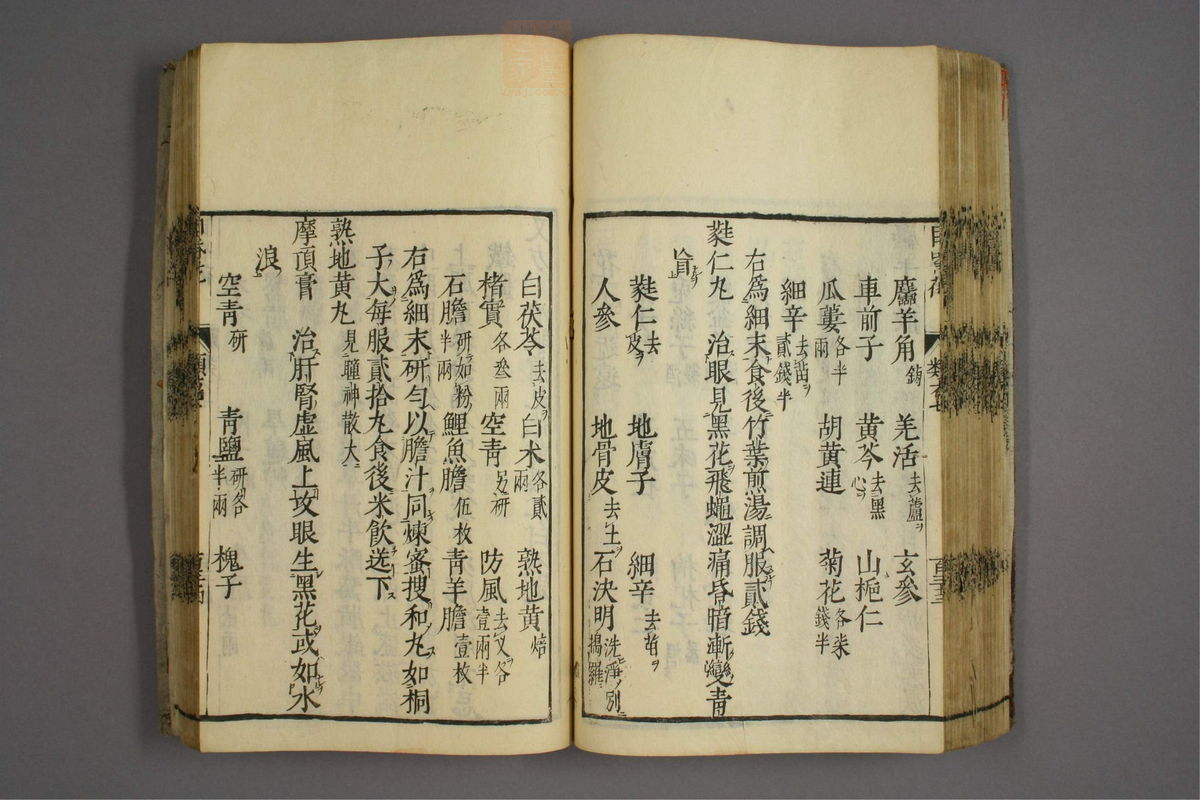 羚羊角 鎊 羌活 去蘆 玄參
車前子 黃芩 去黑心 山梔仁
瓜蔞 各半兩 胡黃連 菊花 各柒錢半
細辛 去苗 貳錢半
右爲細末食後竹葉煎湯調服貳錢
蕤仁丸 治眼見黑花飛蠅澀痛昏暗漸變青
盲
蕤仁 去皮 地膚子 細辛 去苗
人參 地骨皮 去土 石決明 洗淨別搗羅
白茯苓 去皮 白术 各貳兩 熟地黃 焙
楮實 各叄兩 空青 另研 防風 去叉各壹兩半
石膽 研如粉半兩 鯉魚膽 伍枚 青羊膽 壹枚
右爲細末研勻以膽汁同煉蜜搜和丸如桐
子大每服貳拾丸食後米飲送下
熟地黃丸 見瞳神散大
摩頂膏 治肝腎虚風上攻眼生黑花或如水
浪
空青 研 青鹽 研各半兩 槐子